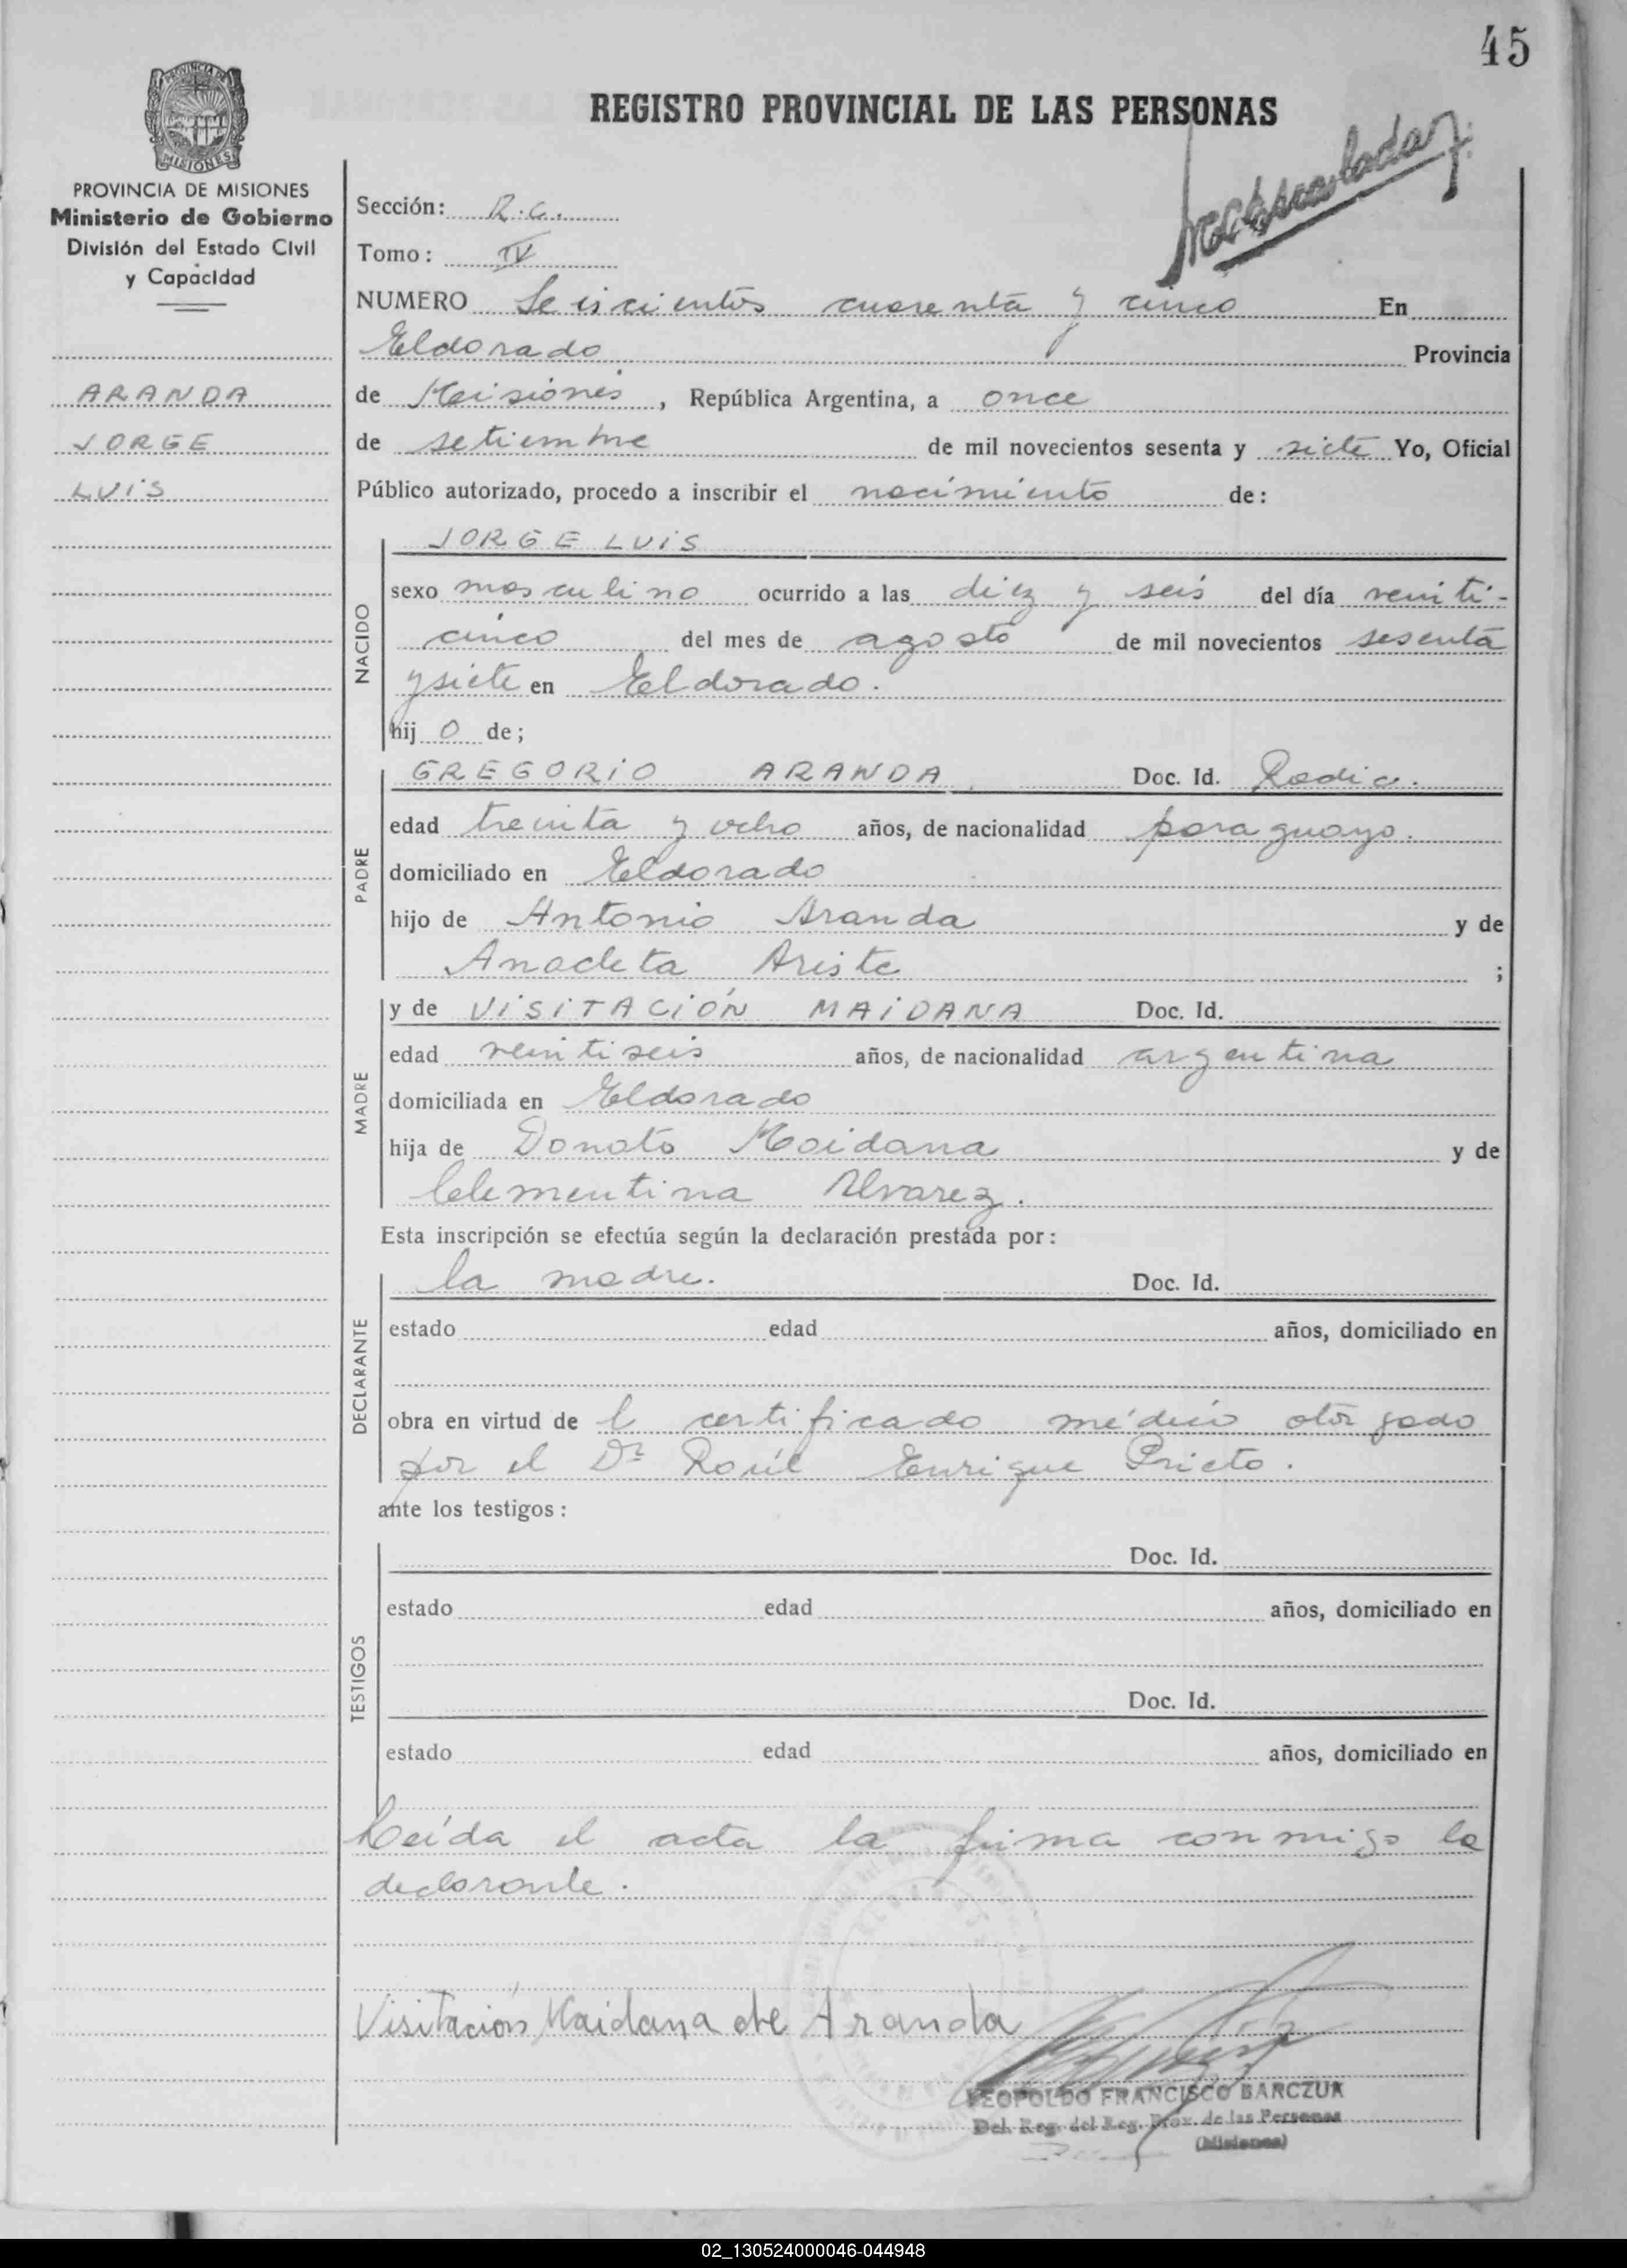 45
REGISTRO PROVINCIAL DE LAS PERSONAS
PROVINCIA DE
MISIONES
PROVINCIA DE MISIONES
Ministerio de Gobierno
División del Estado Civil
y Capacidad
ARANDA
JORGE
LUIS
Sección: R.C.
Tomo: IV
NUMERO Seiscientos cuarenta y cinco En
Eldorado Provincia
de Misiones, República Argentina, a once
de setiembre de mil novecientos sesenta y siete Yo, Oficial
Público autorizado, procedo a inscribir el nacimiento de:
NACIDO
JORGE LUIS
sexo masculino ocurrido a las diez y seis del día veinti-
cinco del mes de agosto de mil novecientos sesenta
y siete en Eldorado.
hijo de;
PADRE
GREGORIO ARANDA Doc. Id. Radic.
edad treinta y ocho años, de nacionalidad paraguayo.
domiciliado en Eldorado
hijo de Antonio Aranda y de
Anacleta Ariste ;
MADRE
y de VISITACIÓN MAIDANA Doc. Id.
edad veintiseis años, de nacionalidad argentina
domiciliada en Eldorado
hija de Donato Maidana y de
Clementina Alvarez.
Esta inscripción se efectúa según la declaración prestada por:
DECLARANTE
la madre. Doc. Id.
estado edad años, domiciliado en
obra en virtud del certificado médico otorgado
por el Dr Raúl Enrique Prieto.
ante los testigos:
TESTIGOS
Doc. Id.
estado edad años, domiciliado en
Doc. Id.
estado edad años, domiciliado en
Leída el acta la firma conmigo la
declarante.
Visitación Maidana de Aranda
LEOPOLDO FRANCISCO BARCZUK
Del. Reg. del Reg. Prov. de las Personas
(Misiones)
02_130524000046-044948